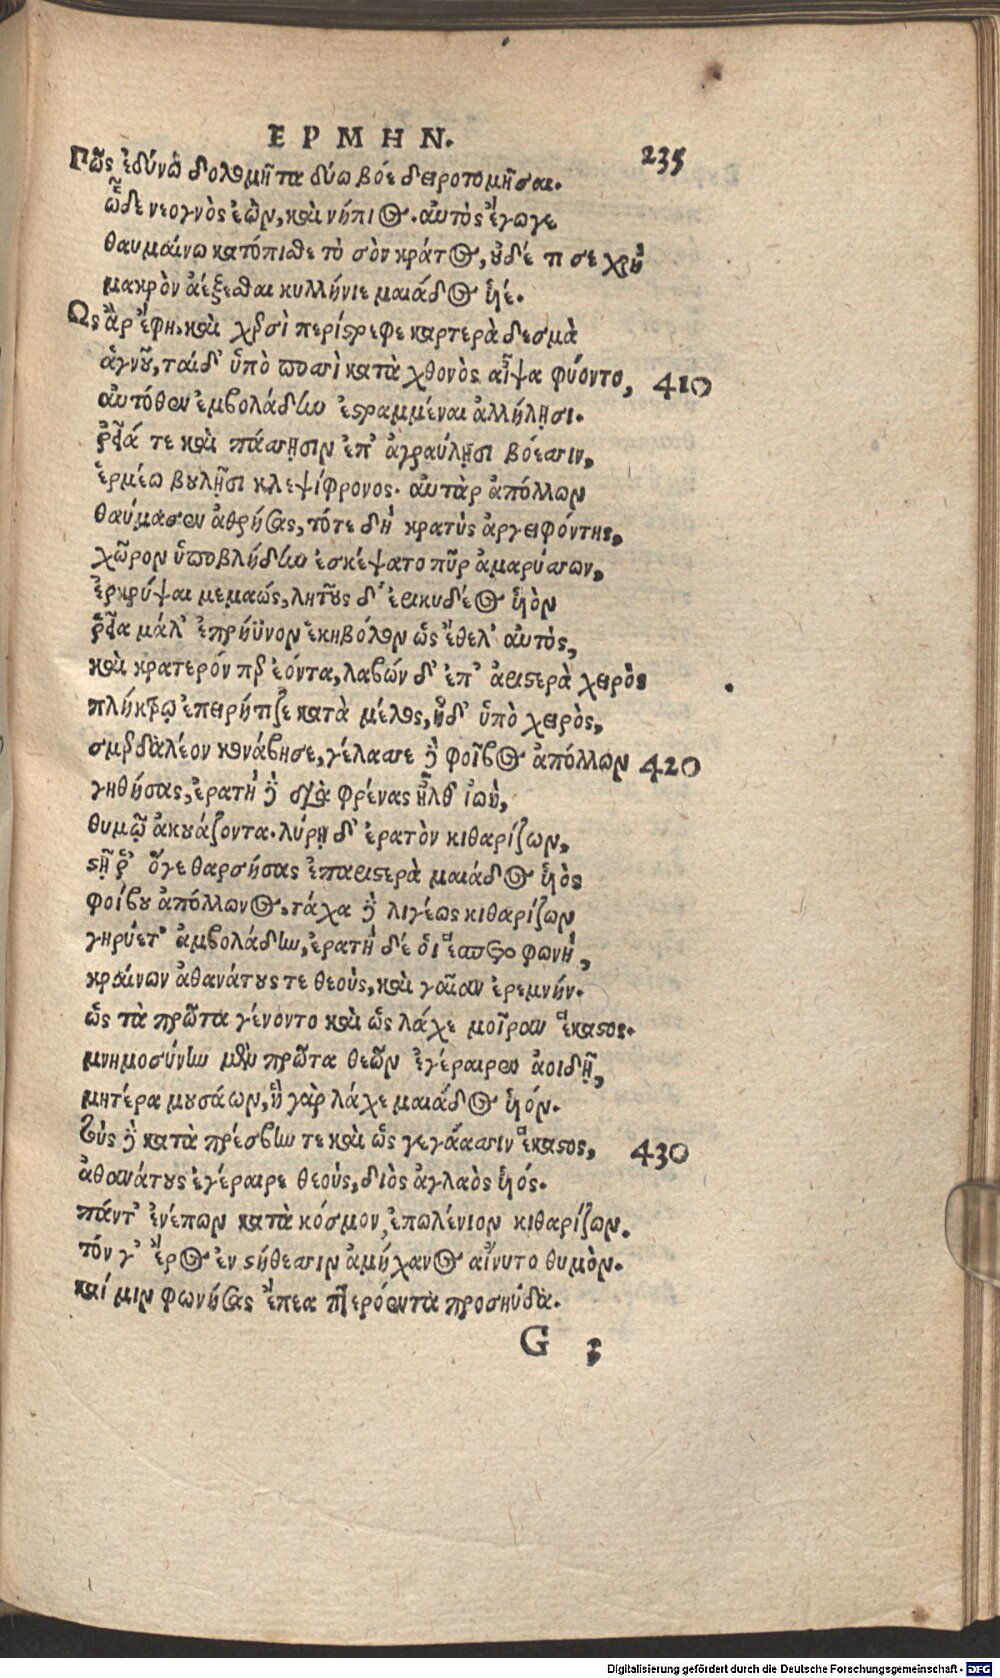 ΕΡΜΗΝ.
235
Πῶς ἐδύνω δολομῆτα δύω βόε δειροτομῆσαι.
ὧδε νεογνὸς ἐὼν, καὶ νήπιος. αὐτὸς ἔγωγε
θαυμαίνω κατόπισθε τὸ σὸν κράτος, οὐδέ τι σε χρὴ
μακρὸν ἀέξεσθαι κυλλήνιε μαιάδος υἱέ.
Ως ἄρ ἔφη, καὶ χερσὶ περίστρεφε καρτερὰ δεσμὰ
ἁγνοῦ, ταὶ δ' ὑπὸ ποσσὶ κατὰ χθονὸς αἶψα φύοντο, 410
αὐτόθεν ἐμβολάδην ἐστραμμέναι ἀλλήλῃσι.
ῥεῖά τε καὶ πάσῃσιν ἐπ' ἀγραύλῃσι βόεσσιν,
ἑρμέω βουλῇσι κλεψίφρονος. αὐτὰρ ἀπόλλων
θαύμασεν ἀθρήσας, τότε δὴ κρατὺς ἀργειφόντης,
χῶρον ὑποβλήδην ἐσκέψατο πῦρ ἀμαρύσσων,
ἐγκρύψαι μεμαώς, λητοῦς δ' ἐρικυδέος υἱὸν
ῥεῖα μάλ' ἐπρήϋνον ἑκηβόλον ὡς ἔθελ' αὐτὸς,
καὶ κρατερόν περ ἐόντα, λαβών δ' ἐπ' ἀριστερὰ χειρὸς
πλήκτρῳ ἐπειρήτιζε κατὰ μέλος, ἡ δ' ὑπὸ χειρὸς,
σμερδαλέον κονάβησε, γέλασσε δὲ φοῖβος ἀπόλλων 420
γηθήσας, ἐρατὴ δὲ διὰ φρένας ἤλυθ' ἰωὴ,
θυμῷ ἀκουάζοντα. λύρῃ δ' ἐρατὸν κιθαρίζων,
στῆ ῥ' ὅγε θαρσήσας ἐπ' ἀριστερὰ μαιάδος υἱὸς
φοίβου ἀπόλλωνος, τάχα δὲ λιγέως κιθαρίζων
γηρύετ' ἀμβολάδην, ἐρατὴ δέ οἱ ἕσπετο φωνὴ,
κραίνων ἀθανάτους τε θεοὺς, καὶ γαῖαν ἐρεμνήν.
ὡς τὰ πρῶτα γένοντο καὶ ὡς λάχε μοῖραν ἕκαστος.
μνημοσύνην μὲν πρῶτα θεῶν ἐγέραιρεν ἀοιδῇ,
μητέρα μουσάων, ἡ γὰρ λάχε μαιάδος υἱόν.
τοὺς δὲ κατὰ πρέσβιν τε καὶ ὡς γεγάασσιν ἕκαστος, 430
ἀθανάτους ἐγέραιρε θεοὺς, διὸς ἀγλαὸς υἱός.
πάντ' ἐνέπων κατὰ κόσμον, ἐπωλένιον κιθαρίζων.
τόν γ' ἔρος ἐν στήθεσσιν ἀμήχανος αἴνυτο θυμὸν.
καί μιν φωνήσας ἔπεα πτερόεντα προσηύδα.
G 3
Digitalisierung gefördert durch die Deutsche Forschungsgemeinschaft - DFG